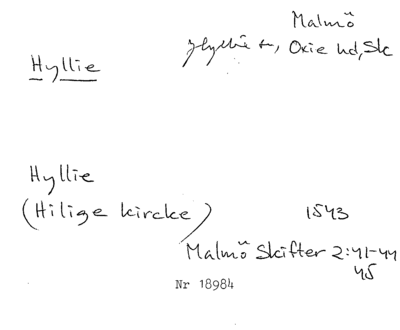 Malmö
Hyllie sn, Oxie hd, Sk
Hyllie
Hyllie
(Hilige kircke) 1543
Malmö Skifter 2:41-44
45
Nr 18984